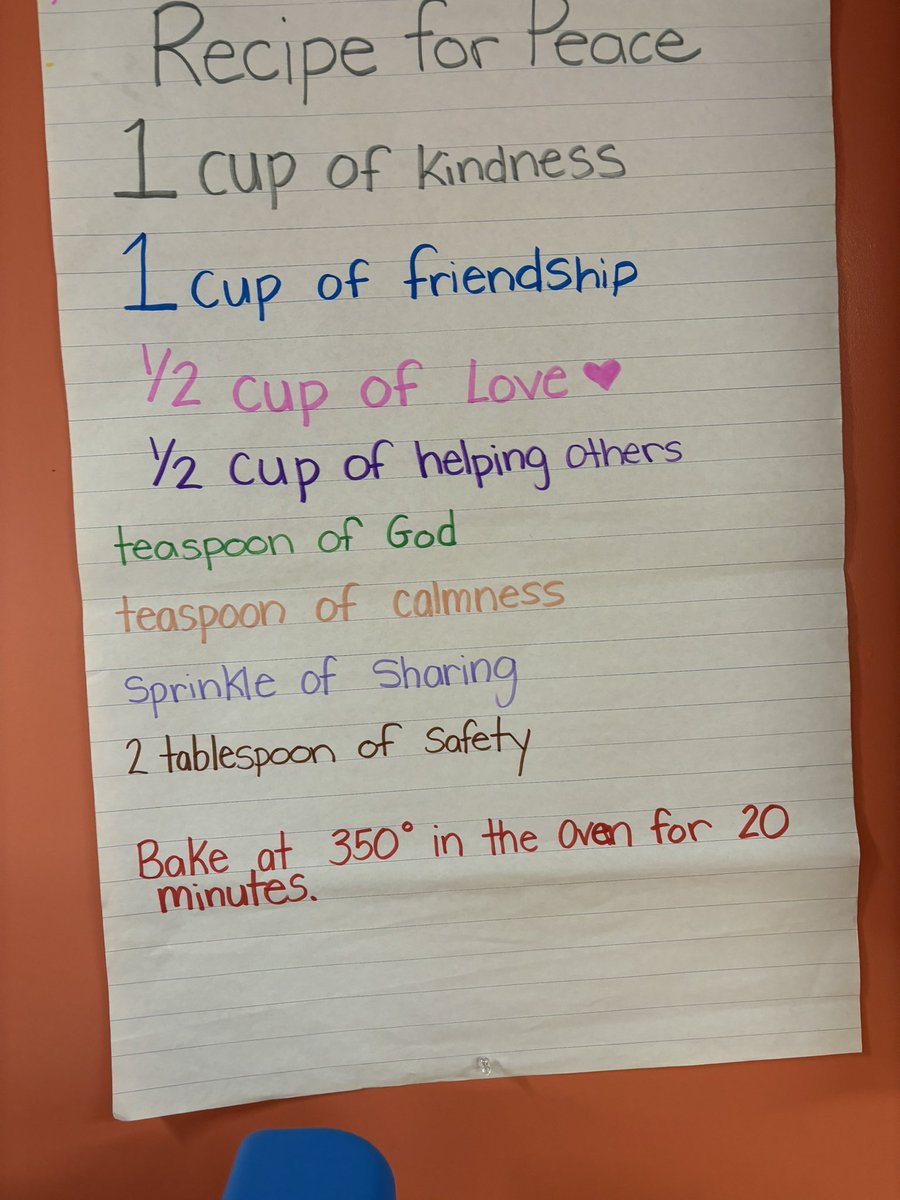 Recipe for Peace
1 cup of kindness
1 cup of friendship
1/2 cup of Love ♥
1/2 cup of helping others
teaspoon of God
teaspoon of calmness
Sprinkle of Sharing
2 tablespoon of Safety
Bake at 350° in the oven for 20
minutes.